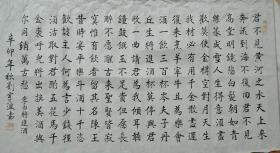 君不見黄河之水天上来
奔流到海不復回君不見
高堂明鏡悲白髮朝如青
絲暮成雪人生得意須盡
歡莫使金樽空對月天生
我材必有用千金散盡還
復来烹羊宰牛且為樂會
須一飲三百杯岑夫子丹
丘生將進酒杯莫停與君
歌一曲請君為我傾耳聽
鐘鼓饌玉不足貴但願長
醉不願醒古来聖賢皆寂
寞惟有飲者留其名陳王
昔時宴平樂斗酒十千恣
歡謔主人何為言少錢徑
須沽取對君酌五花馬千
金裘呼兒將出換美酒與
尔同銷萬古愁 李白將進酒
辛卯年秋劉波書